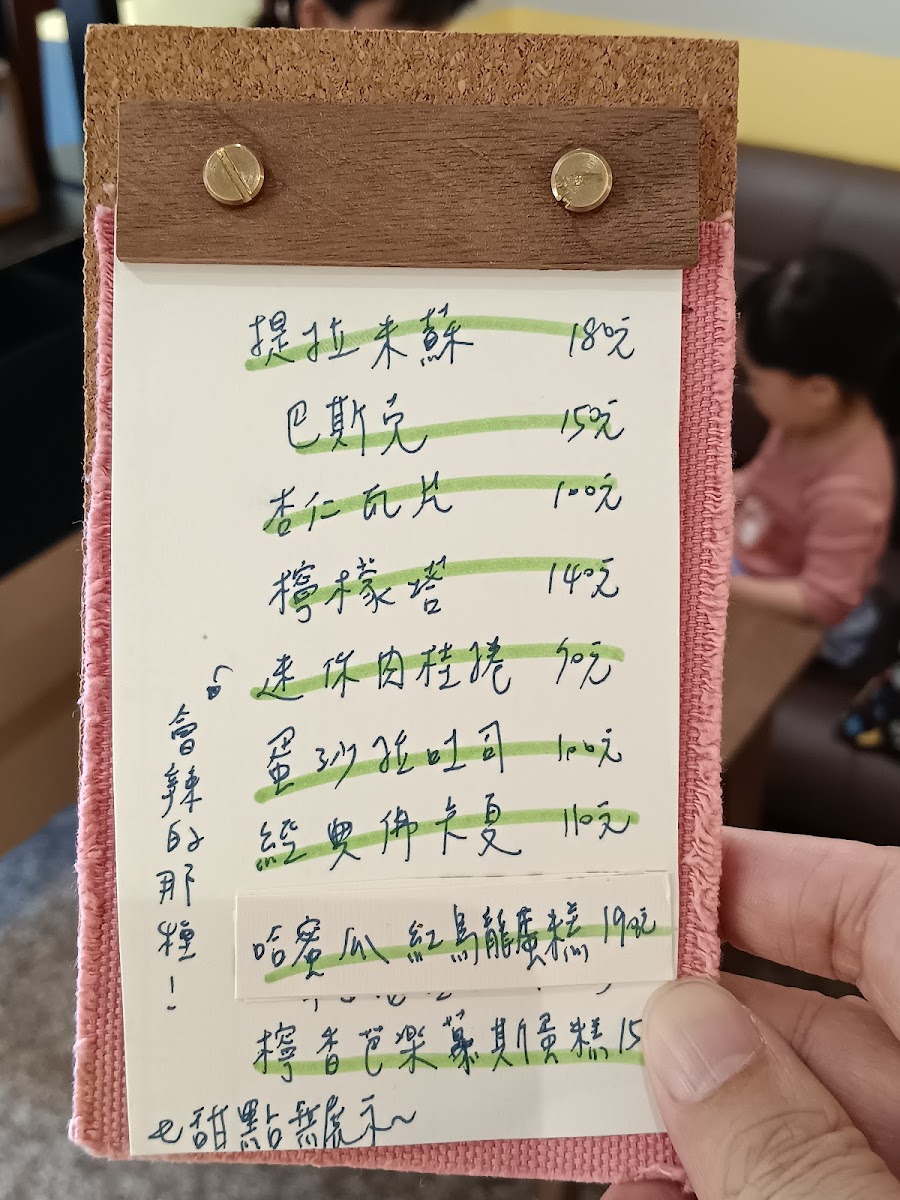 提拉米蘇 180元
巴斯克 150元
杏仁瓦片 100元
檸檬塔 140元
迷你肉桂捲 90元
蛋沙拉吐司 100元
經典佛卡夏 110元
哈蜜瓜紅烏龍蛋糕 190元
檸香芭樂慕斯蛋糕 15
甜點無展示～
會辣的那種！